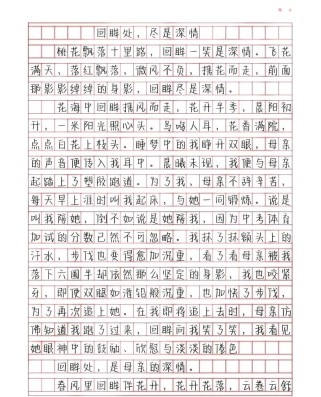 回眸处，尽是深情
桃花飘落十里路，回眸一笑是深情。飞花
满天，落红飘飘，微风不负，携花而走，前面
那影影绰绰的身影，回眸尽是深情。
花海中回眸携风而走，花开半季，晨阳初
升，一米阳光照心头。鸟鸣人耳，花香满院，
点点白花上枝头。睡梦中的我睁开双眼，母亲
的声音便传入我耳中。晨曦未现，我便与母亲
起踏上了塑胶跑道。为了我，母亲不辞辛苦，
每天早上准时叫我起床，与她一同锻炼。说是
叫我陪她，倒不如说是她陪我，因为中考体育
加试的分数已然不可忽略。我抹了抹额头上的
汗水，步伐也变得愈加沉重，看了看母亲被我
落下六圈半却依然那么坚定的身影，我也咬紧
牙，即使双腿如灌铅般沉重，也加快了步伐，
为了再次追上她。在我即将追上去时，母亲仿
佛知道我跑了过来，回眸向我笑了笑，我看见
她眼神中的鼓励、欣慰与淡淡的倦色
回眸处，是母亲的深情。
春风里回眸伴花开，花开花落，云卷云舒